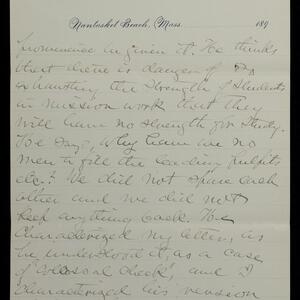 Nantasket Beach, Mass. 189
prominence in given it. He thinks
that there is danger of so
exhausting the strength of students
in mission work that they
will have no strength for study.
He says, Why have we no
men to fill the leading pulpits
etc.? We did not spare each
other and we did not
keep anything back. He
characterized my letter, as
he understood it, as a case
of "colossal cheek", and I
characterized his version